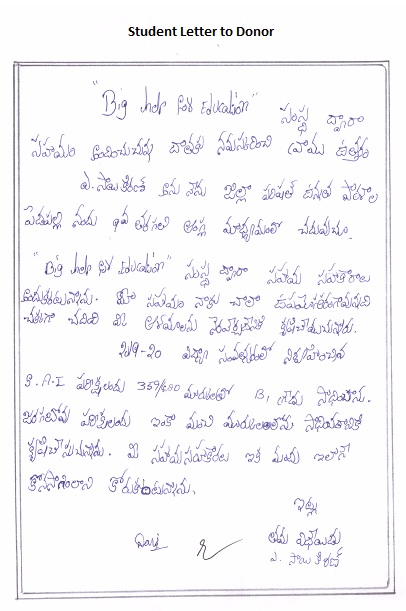 Student Letter to Donor
"Big help for Education" సంస్థ ద్వారా
సహాయం అందించుచున్న దాతలకు నమస్కరించి వ్రాయు ఉత్తరం
ఎ. సాయి కిరణ్ అను నేను జిల్లా పరిషత్ ఉన్నత పాఠశాల
పెదపల్లి నందు 9వ తరగతి ఆంగ్ల మాధ్యమంలో చదువుచు.
"Big help for Education" సంస్థ ద్వారా సహాయ సహకారాలు
అందుకుంటున్నాను. ఈ సహాయం నాకు చాలా ఉపయోగకరంగా
చక్కగా చదివి మీ ఆశయాలను కృషిచేయుచున్నాను.
2019-20 విద్యా సంవత్సరంలో నిర్వహించిన
S.A-I పరీక్షలందు 359/480 మార్కులతో B1 గ్రేడు సాధించాను.
జరగబోవు పరీక్షలందు ఇంకా మంచి మార్కులు సాధించడానికి
కృషిచేస్తున్నాను. మీ సహాయసహకారాలు ఇక ముందు ఇలానే
కొనసాగించాలని కోరుకుంటున్నాను.
ఇట్లు
తమ విధేయుడు
ఎ. సాయి కిరణ్